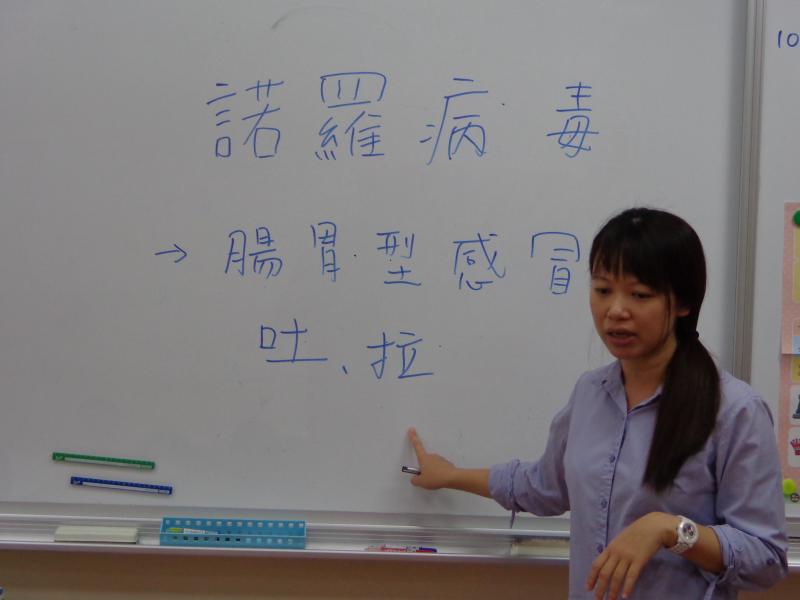 諾羅病毒
→腸胃型感冒
吐、拉
10